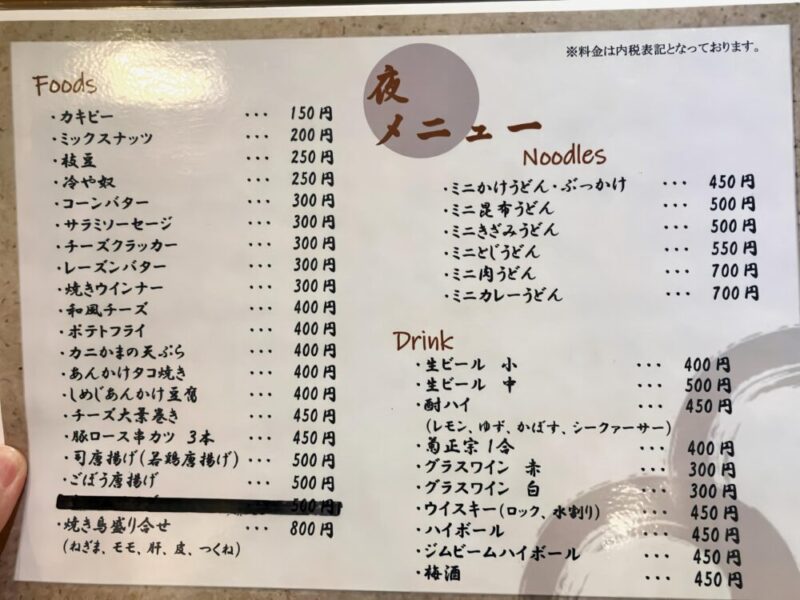 ※料金は内税表記となっております。
夜
メニュー
Foods
・カキピー ・・・ 150円
・ミックスナッツ ・・・ 200円
・枝豆 ・・・ 250円
・冷や奴 ・・・ 250円
・コーンバター ・・・ 300円
・サラミソーセージ ・・・ 300円
・チーズクラッカー ・・・ 300円
・レーズンバター ・・・ 300円
・焼きウインナー ・・・ 300円
・和風チーズ ・・・ 400円
・ポテトフライ ・・・ 400円
・カニかまの天ぷら ・・・ 400円
・あんかけタコ焼き ・・・ 400円
・しめじあんかけ豆腐 ・・・ 400円
・チーズ大葉巻き ・・・ 450円
・豚ロース串カツ 3本 ・・・ 450円
・司唐揚げ(若鶏唐揚げ) ・・・ 500円
・ごぼう唐揚げ ・・・ 500円
500円
・焼き鳥盛り合せ ・・・ 800円
(ねぎま、モモ、肝、皮、つくね)
Noodles
・ミニかけうどん・ぶっかけ ・・・ 450円
・ミニ昆布うどん ・・・ 500円
・ミニきざみうどん ・・・ 500円
・ミニとじうどん ・・・ 550円
・ミニ肉うどん ・・・ 700円
・ミニカレーうどん ・・・ 700円
Drink
・生ビール 小 ・・・ 400円
・生ビール 中 ・・・ 500円
・酎ハイ ・・・ 450円
(レモン、ゆず、かぼす、シークァーサー)
・菊正宗 1合 ・・・ 400円
・グラスワイン 赤 ・・・ 300円
・グラスワイン 白 ・・・ 300円
・ウイスキー(ロック、水割り) ・・・ 450円
・ハイボール ・・・ 450円
・ジムビームハイボール ・・・ 450円
・梅酒 ・・・ 450円